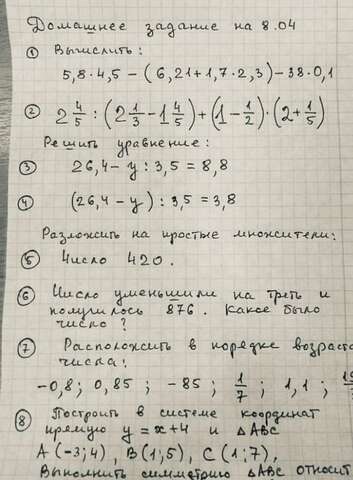 Домашнее задание на 8.04
① Вычислить:
5,8·4,5-(6,21+1,7·2,3)-38·0,1
② 2 4/5 : (2 1/3 - 1 4/5) + (1 - 1/2) · (2 + 1/5)
Решить уравнение:
③ 26,4-y:3,5=8,8
④ (26,4-y):3,5=3,8
Разложить на простые множители:
⑤ Число 420.
⑥ Число уменьшили на треть и
получилось 876. Какое было
число?
⑦ Расположить в порядке возраста
числа:
-0,8; 0,85; -85; 1/7; 1,1;
⑧ Построить в системе координат
прямую y=x+4 и △ABC
A(-3;4), B(1;5), C(1;7),
Выполнить симметрию △ABC относит